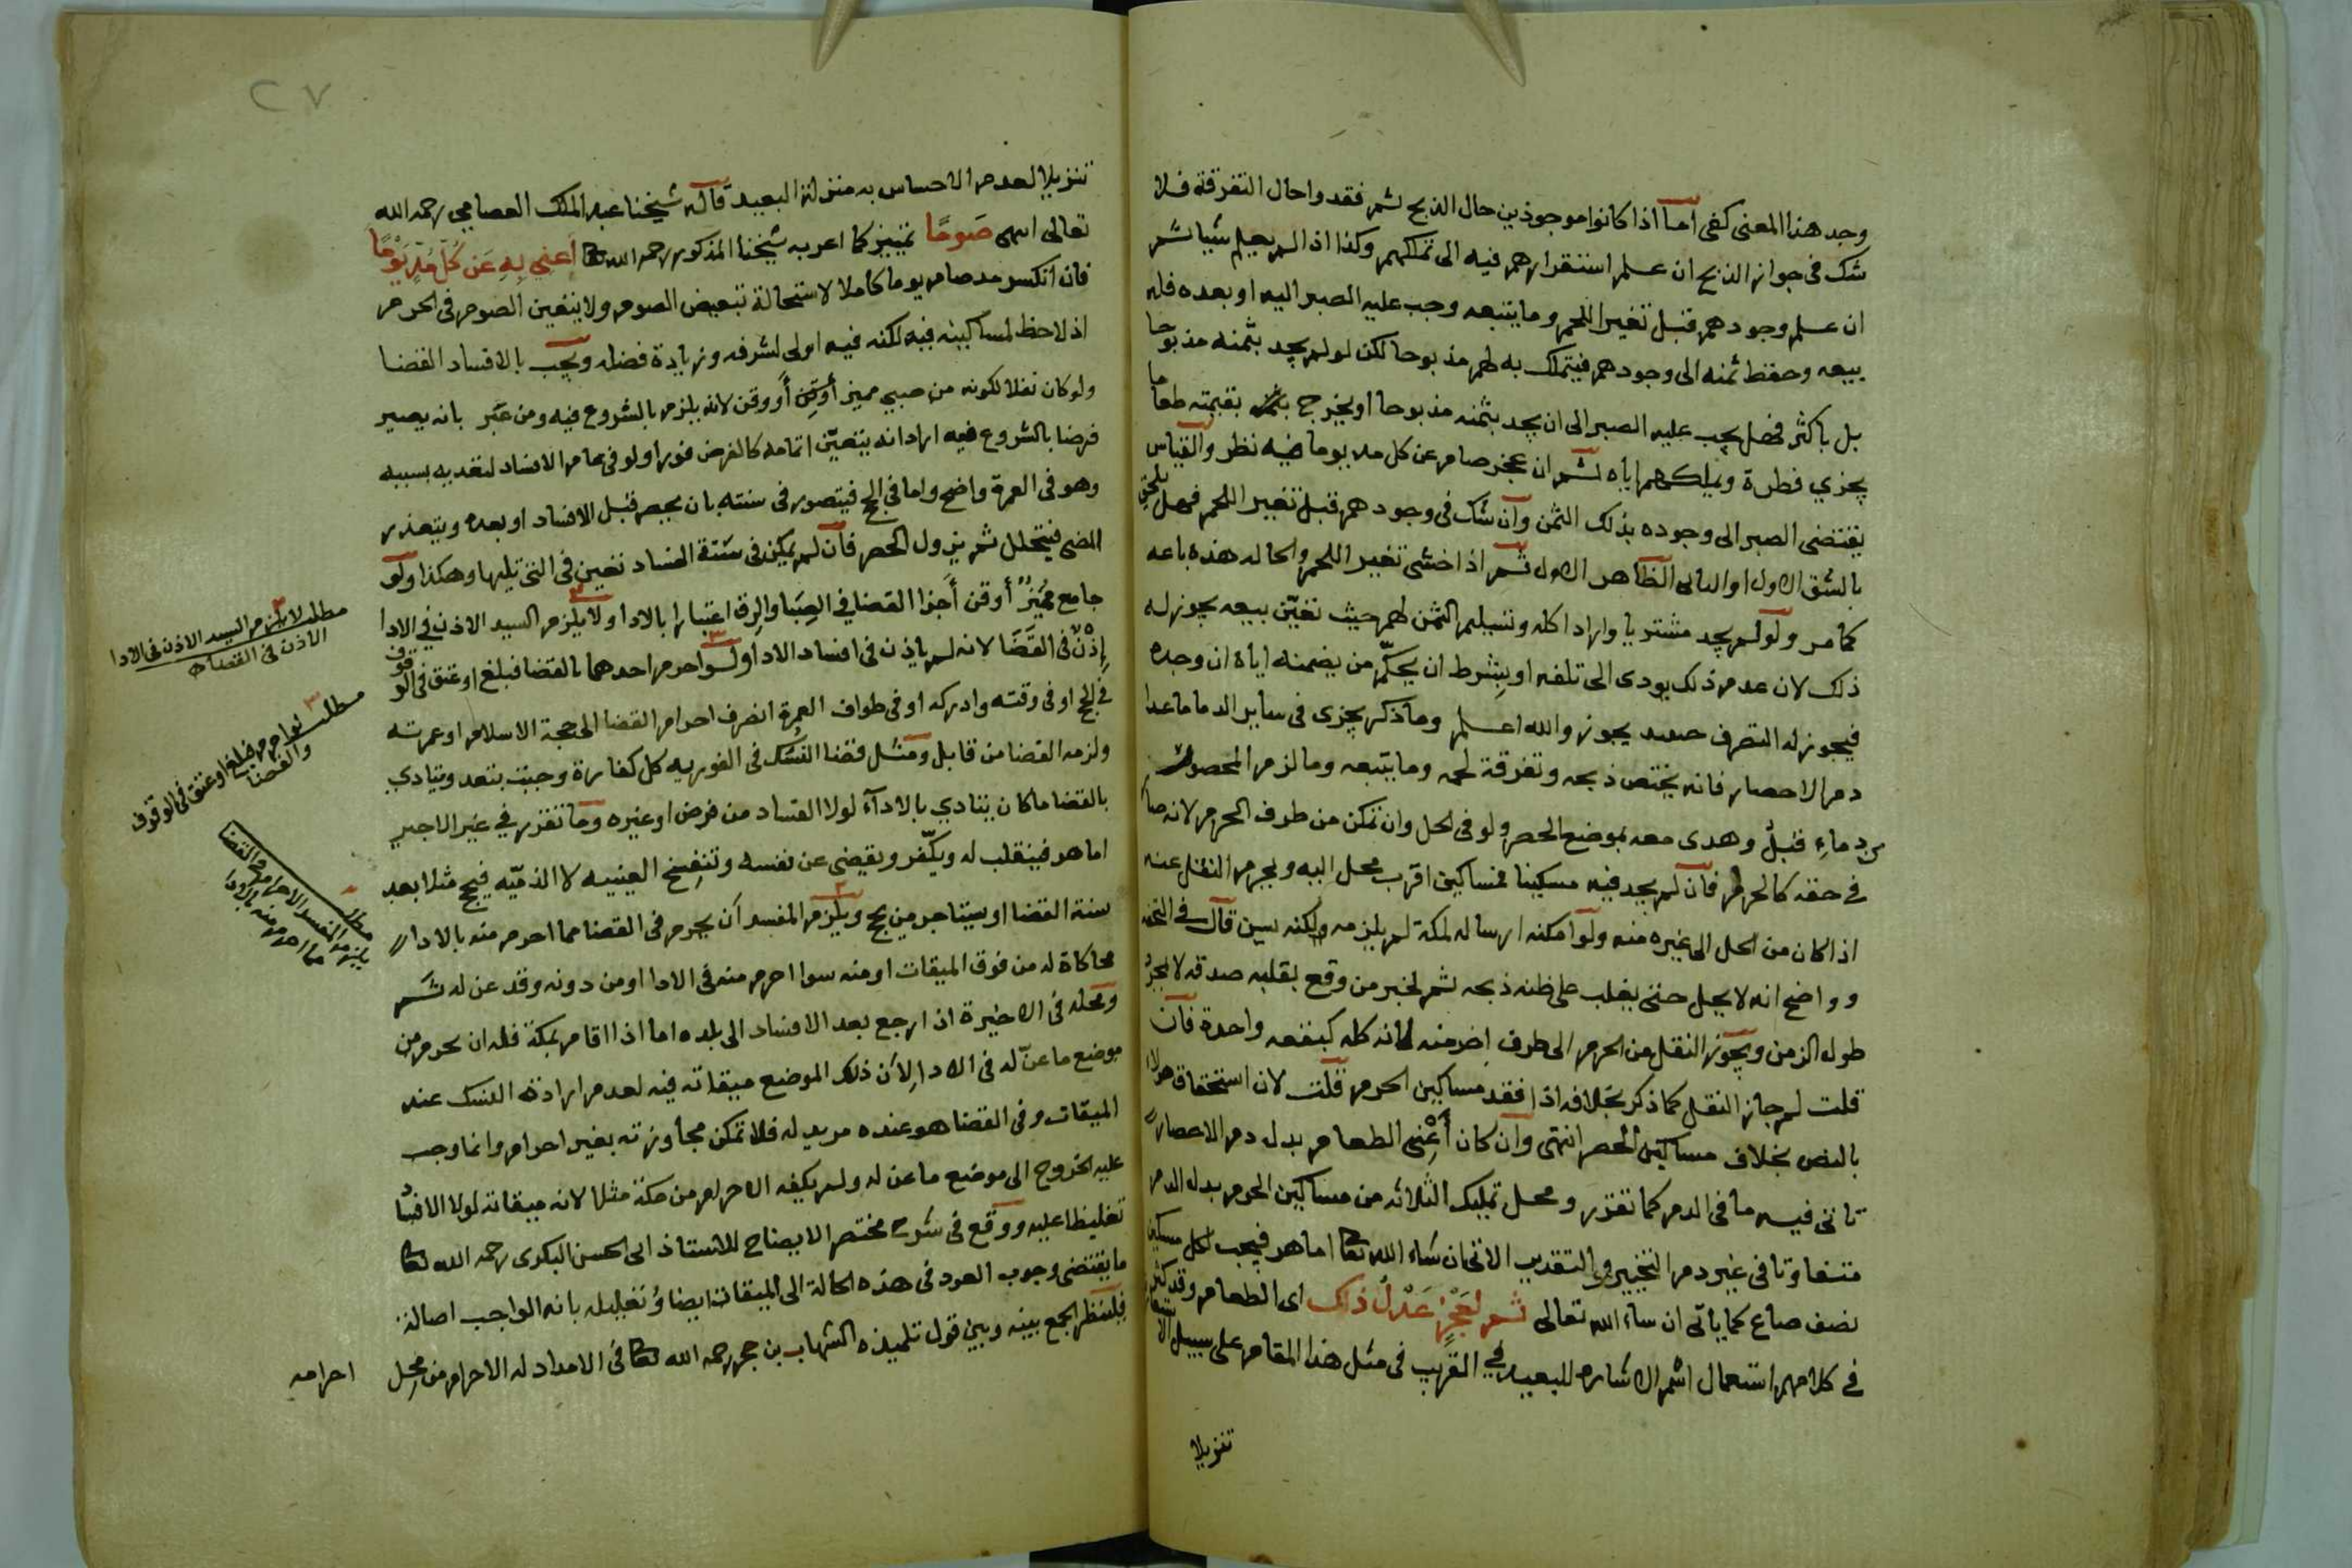 وجد هذا المعنى كفى اما اذا كانوا موجوذين حال الذبح ثم فقدوا حال التفرقة فلا
شك فى جواز الذبح ان علم استقرارهم فيه الى تملكهم وكذا اذا لم يعلم شيا ثم
ان علم وجودهم قبل تغير اللحم وما يتبعه وجب عليه الصبر اليه او بعده فله
بيعه وحفظ ثمنه الى وجودهم فيتملك به لهم مذبوحا لكن لو لم يجد بثمنه مذبوحا
بل باكثر فهل يجب عليه الصبر الى ان يجد بثمنه مذبوحا او يخرج بقيمته طعاما
يجزي فطرة ويملكهم اياه ثم ان عجز صام عن كل مد يوما فيه نظر والقياس
يقتضى الصبر الى وجوده بذلك الثمن وان شك فى وجودهم قبل تغير اللحم فهل يلحق
بالشق الاول او الثانى الظاهر الاول ثم اذا خشى تغير اللحم والحالة هذه باعه
كما مر ولو لم يجد مشتريا واراد اكله وتسليم الثمن لهم حيث تعيّن بيعه يجوز له
ذلك لان عدم ذلك يودى الى تلفه او يشرط ان يحكّم من يضمنه اياه ان وجده
فيجوز له التصرف حينئذ يجوز والله اعلم وما ذكر يجزى فى سائر الدما ما عدا
دم الاحصار فانه يختص ذبحه وتفرقة لحمه وما يتبعه وما لزم المحصر
من دماءٍ قبلُ وهدى معه بموضع الحصر ولو فى الحل وان تمكن من طرف الحرم لانه صار
فى حقه كالحرم فان لم يجد فيه مسكينا فمساكين اقرب محل اليه ويحرم النقل عنه
اذا كان من الحل الى غيره منه ولو امكنه ارساله لمكة لم يلزمه ولكنه يسن قال فى التحفة
وواضح انه لا يحل حتى يغلب على ظنه ذبحه ثم لخبر من وقع بقلبه صدقه لا بمجرد
طول الزمن ويجوز النقل من الحرم الى طرف اخر منه لانه كله كبقعه واحدة فان
قلت لم جاز النقل كما ذكر بخلافه اذا فقد مساكين الحرم قلت لان استحقاق هولاء
بالنص بخلاف مساكين الحصر انتهى وان كان أَعْنِى الطعام بدل دم الاحصار
تاتى فيه ما فى الدم كما تقرر ومحل تمليك الثلاثه من مساكين الحرم بدل الدم
متفاوتا فى غير دم التخيير والتقدير الاتى ان شاء الله تعا اما هو فيجب لكل مسكين
نصف صاع كما ياتى ان شاء الله تعالى ثم لِعَجْزٍ عَدْلُ ذلك اى الطعام وقد كثر
فى كلامهم استعمال اسم الاشاره للبعيد فى القريب فى مثل هذا المقام على سبيل الاستعارة
تنزيلا
٢٧
تنزيلا لعدم الاحساس به منزلة البعيد قاله شيخنا عبد الملك العصامي رحمه الله
تعالى انتهى صَومًا تمييز كما اعربه شيخنا المذكور رحمه الله تعا أعني بِهِ عَن كُلّ مُدٍّ يَوْمًا
فان انكسر مد صام يوما كاملا لاستحالة تبعيض الصوم ولا يتعين الصوم فى الحرم
اذ لا حظ لمساكينه فيه لكنه فيه اولى لشرفه وزيادة فضله ويجب بالافساد القضا
ولو كان نفلا لكونه من صبي مميز أو قن لانه يلزم بالشروع فيه ومن عبّر بانه يصير
فرضا بالشروع فيه اراد انه يتعيّن اتمامه كالفرض فورا ولو فى عام الافساد لتعديه بسببه
وهو فى العمرة واضح واما فى الحج فيتصور فى سنته بان يحصر قبل الافساد او بعده ويتعذر
المضى فيتحلل ثم يزول الحصر فان لم يمكن فى سنة الفساد تعين فى التى تليها وهكذا ولو
جامع مميزٌ أو قن أجزا القضا فى الصِّبا والرق اعتبارا بالادا ولا يلزم السيد الاذن فى الادا
إذْنٌ فى القَضَا لانه لم ياذن فى افساد الادا ولو احرم احدهما بالقضا فبلغ او عتق فى الوقوف
فى الحج او فى وقته وادركه او فى طواف العمرة انصرف احرام القضا الى حجة الاسلام او عمرته
ولزمه القضا من قابل ومثل قضا النسك فى الفوريه كل كفارة وجبت بتعد ويتادي
بالقضا ما كان يتادي بالادآء لولا الفساد من فرض او غيره وما تقرر فى غير الاجير
اما هو فينقلب له ويكفّر ويقضى عن نفسه وتنفسخ العينيه لا الذميّه فيحج مثلا بعد
سنة القضا او يستاجر من يحج ويلزم المفسد أن يحرم فى القضا مما احرم منه بالادا
محاكاة له من فوق الميقات او منه سوا احرم منه فى الادا او من دونه وقد عن له ثم
ومحله فى الاخيرة اذا رجع بعد الافساد الى بلده اما اذا اقام بمكة فله ان يحرم من
موضع ما عنّ له فى الادا لأن ذلك الموضع ميقاته فيه لعدم ارادته النسك عند
الميقات وفى القضا هو عنده مريد له فلا تمكن مجاوزته بغير احرام وانما وجب
عليه الخروج الى موضع ما عن له ولم يكفه الاحرام من مكة مثلا لانه ميقاته لولا الافساد
تغليظا عليه ووقع فى شرح مختصر الايضاح للاستاذ ابى الحسن البكرى رحمه الله تعا
ما يقتضى وجوب العود فى هذه الحالة الى الميقات ايضا وتعليله بانه الواجب اصالة
فلينظر الجمع بينه وبين قول تلميذه الشهاب بن حجر رحمه الله تعا فى الامداد له الاحرام من محل
احرامه
مطلب لا يلزم السيد الاذن فى الادا
الاذن فى القضا
مطلب لو احرم فبلغ او عتق فى الوقوف
والقضا
مطلب
يلزم المفسد الاحرام فى القضا
مما احرم منه بالادا